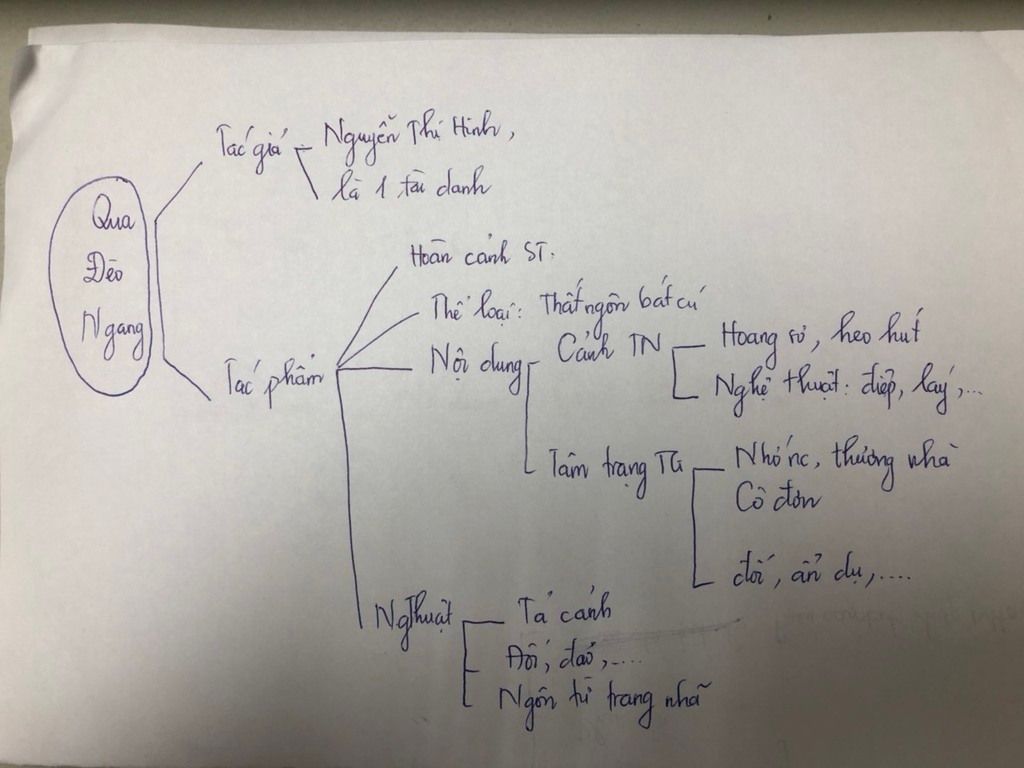 Qua
Đèo
Ngang
Tác giả
Nguyễn Thị Hinh,
là 1 tài danh
Tác phẩm
Hoàn cảnh ST.
Thể loại: Thất ngôn bát cú
Nội dung
Cảnh TN
Hoang sơ, heo hút
Nghệ thuật: điệp, láy,...
Tâm trạng TG
Nhớ nc, thương nhà
Cô đơn
đối, ẩn dụ,....
Ngthuật
Tả cảnh
Đối, đảo,....
Ngôn từ trang nhã